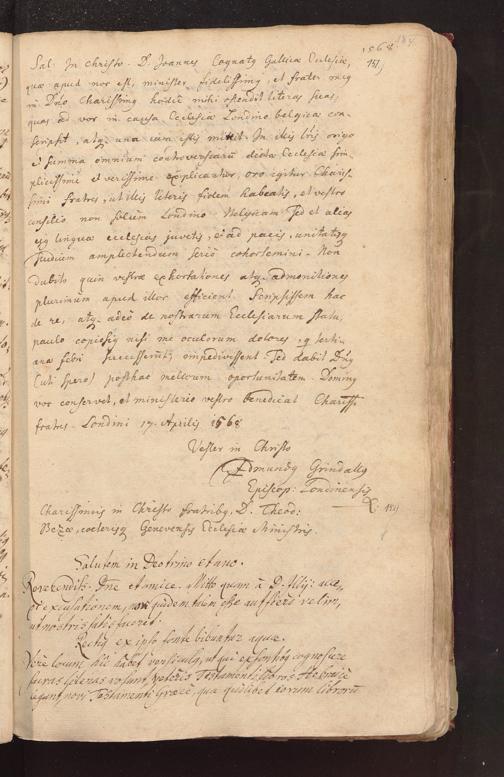 1568
151)
Sal: In Christo. D. Joannes Cognatg Gallicæ Ecclesiæ,
quæ apud nos est, minister fidelissimg, et frater meg
in Dño Charissimg hodie mihi ostendit literas suas,
quas ad vos in causa Ecclesiæ Londino belgicæ con-
scripsit, atq una cum istis mittit. In illis lris origo
et summa omnium controversiarũ dictæ Ecclesiæ sim-
plicissime et verissime explicantur, oro igitur Charis-
simi fratres, ut illis literis fidem habeatis, et vestro
consilio non solum Londino Belgicam sed et alias
ejg linguæ ecclesias juvetis, et ad pacis, unitatisq
studium amplectendum serio cohortemini. Non
dubito quin vestræ exhortationes atq admonitiones
plurimum apud illos efficient. Scripsissem hac
de re, atq adeo de nostrarum Ecclesiarum statu,
paulo copiosig nisi me oculorum dolores, q terti-
ana febri successerũt, impedivissent. Sed dabit Dñg
(uti spero) posthac meliorem oportunitatem. Doming
vos conservet, et ministerio vestro benedicat Chariss.
fratres. Londini 17. Aprilis 1568
Vester in Christo
Edmundg Grindallg
Episcop: Londinensis
Charissimis in Christo fratribg, D. Theod:
Bezæ, cæterisq Genevensis Ecclesiæ Ministris.
Salutem in Deo trino et uno.
Reverendiss. Dñe et amice. Mitto quam à D.
excusationem, non quidem talem esse
ut nostris satisfaceret.
Rectig ex ipso fonte bibuntur aquæ.
Vere locum hic habet versiculg, ut qui ex fontibg cognoscere
sacras literas volunt, veteris Testamenti libros Hebraicè
legant, novi Testamenti Græcè, qua quilibet eorum librorũ